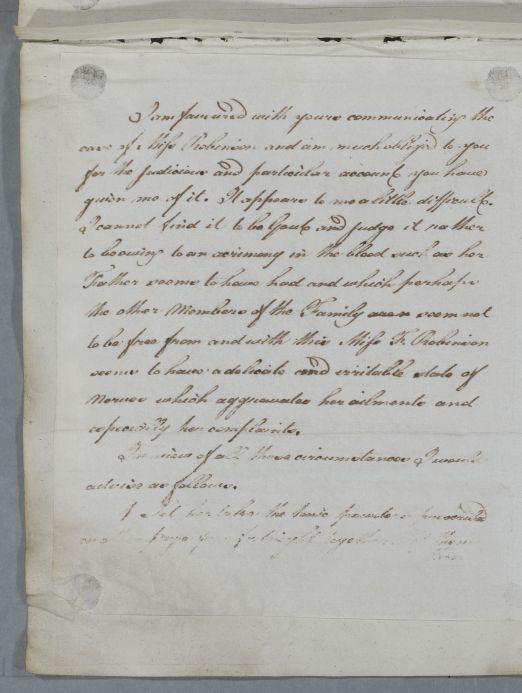 I am favoured with yours communicating the
case of Miss Robinson and am much obliged to you
for the judicious and particular account you have
given me of it. It appears to me a little difficult.
I cannot find it to be Gout and judge it rather
to be owing to an acrimony in the blood such as her
Father seems to have had and which perhaps
the other Members of the Family seem not
to be free from and with this Miss F. Robinson
seems to have a delicate and irritable state of
Nerves which aggravates her ailments and
especially her complaints.
In view of all these circumstances I would
advise as follows.
1 Let her take the powders
together